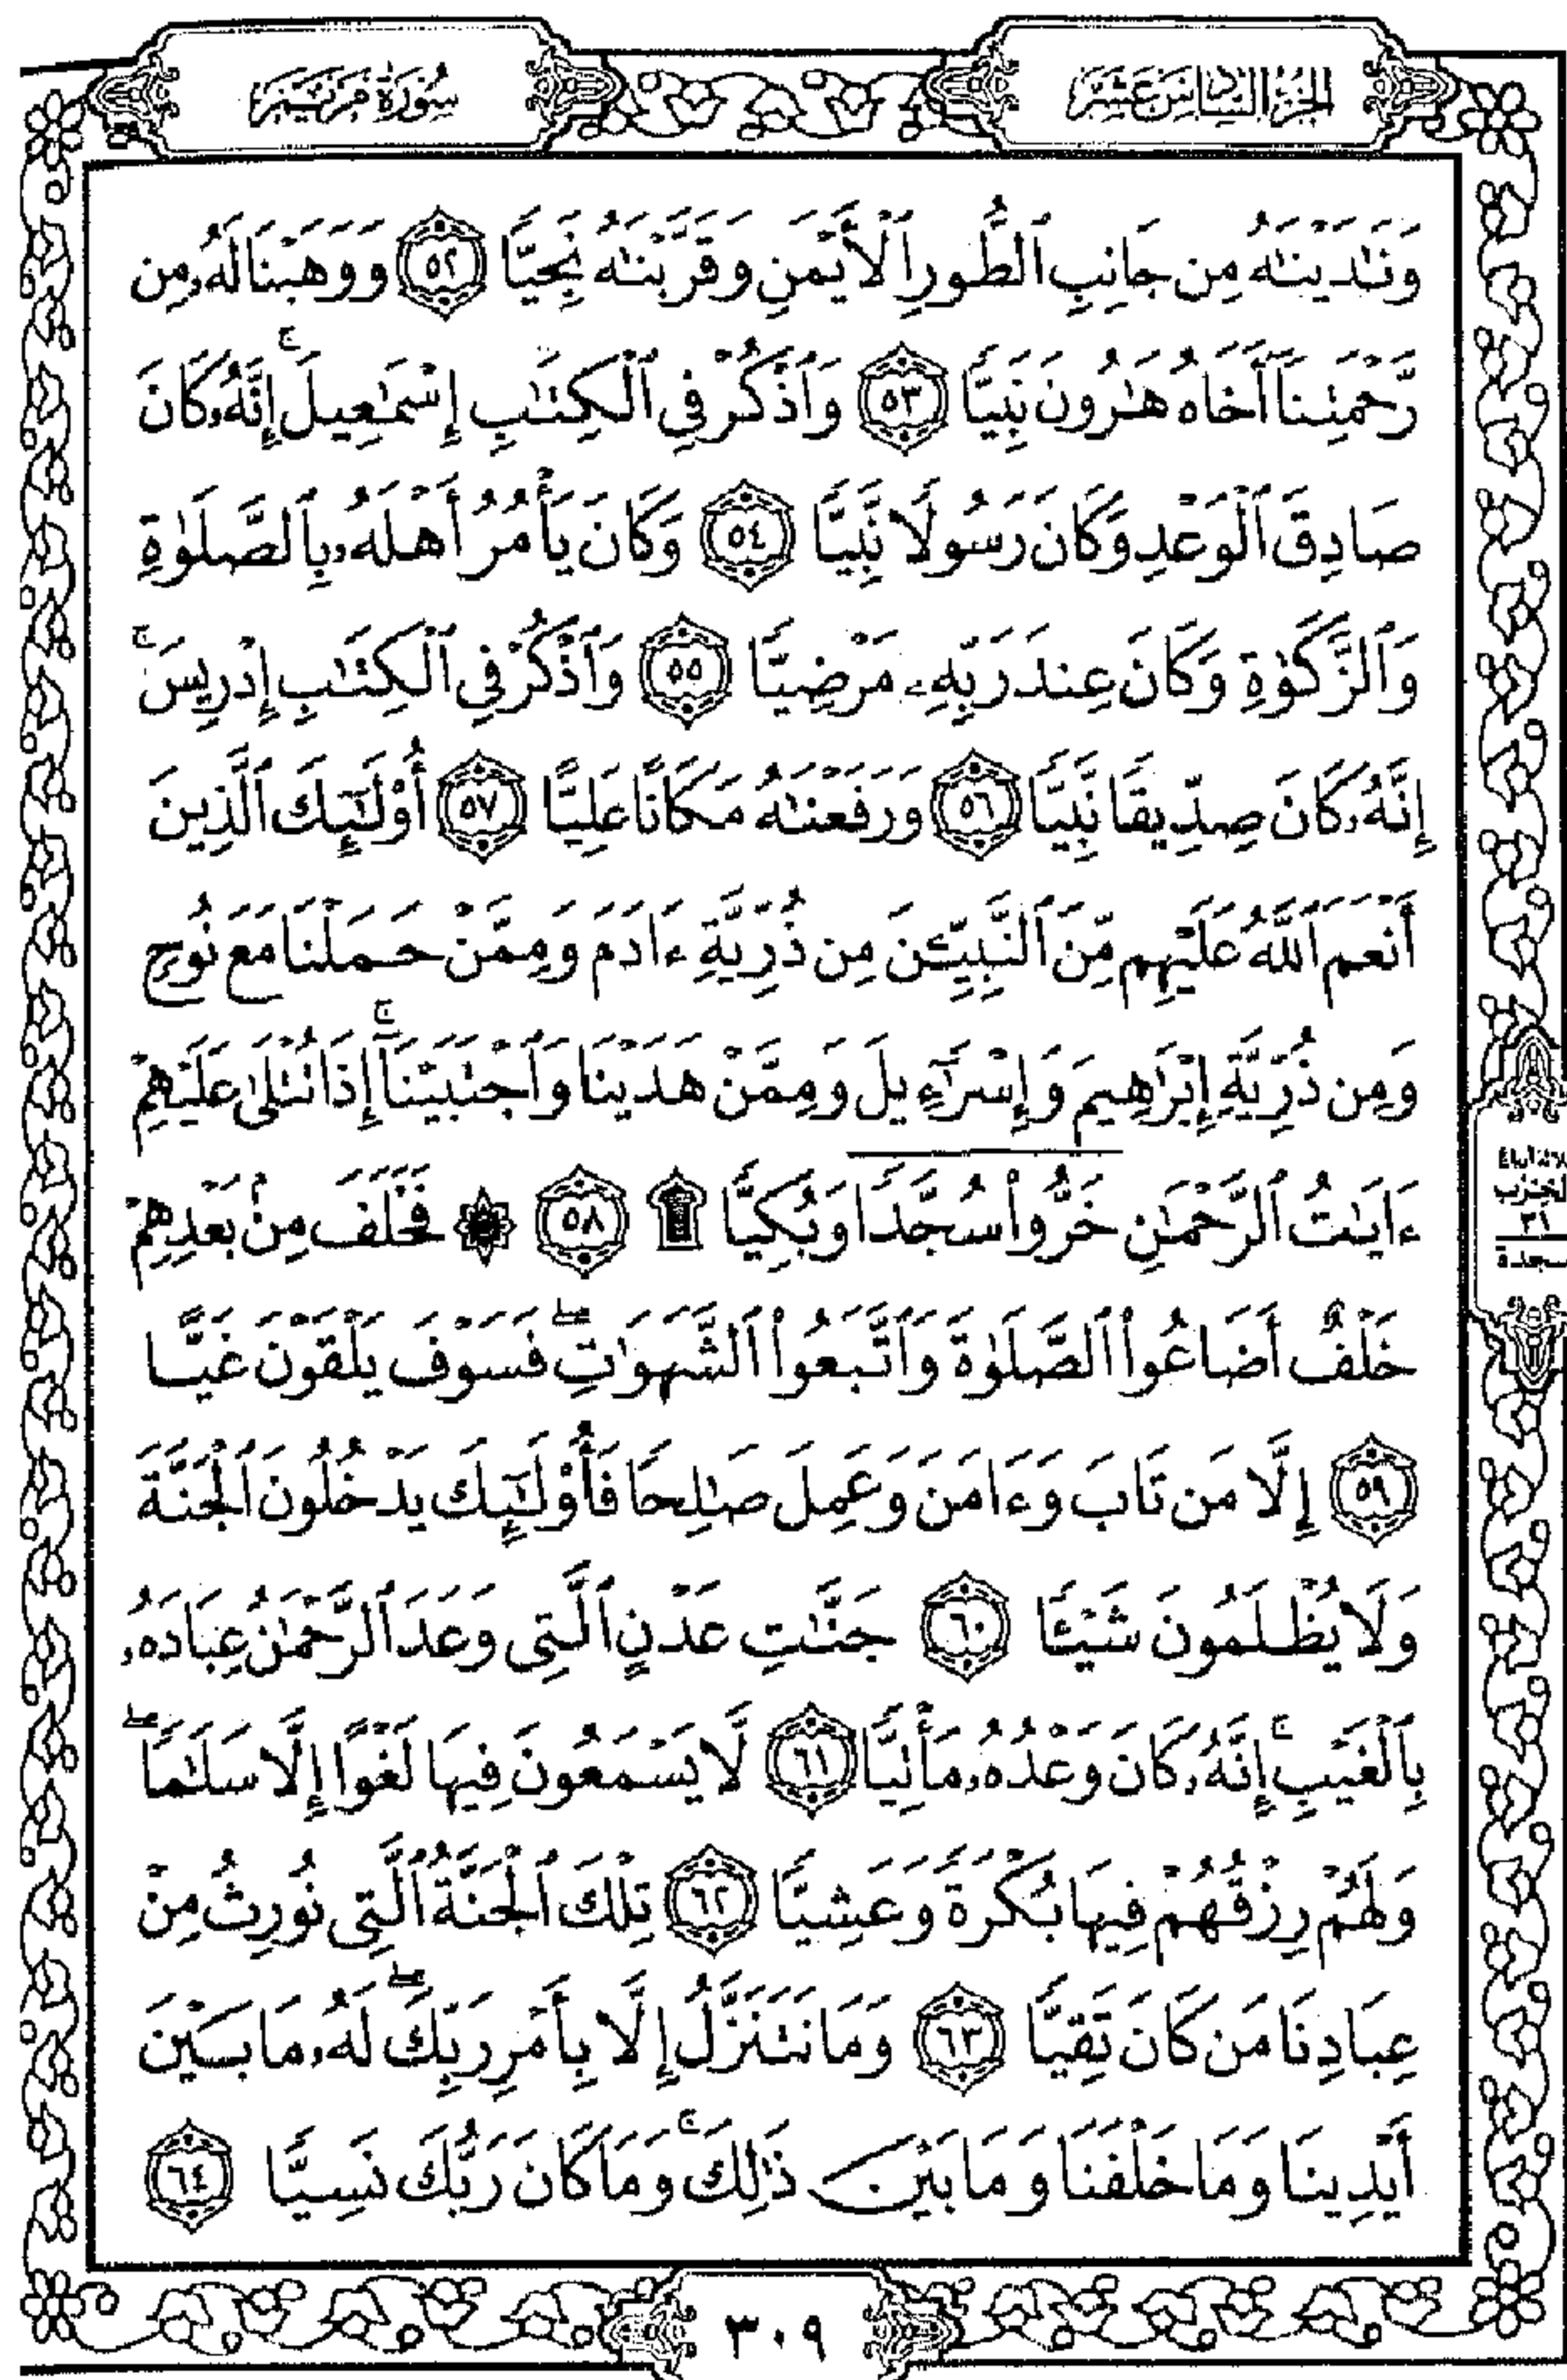 الجزء السادس عشر
سورة مريم
وَنَٰدَيْنَٰهُ مِن جَانِبِ ٱلطُّورِ ٱلْأَيْمَنِ وَقَرَّبْنَٰهُ نَجِيًّا ٥٢ وَوَهَبْنَا لَهُۥ مِن
رَّحْمَتِنَآ أَخَاهُ هَٰرُونَ نَبِيًّا ٥٣ وَٱذْكُرْ فِى ٱلْكِتَٰبِ إِسْمَٰعِيلَ ۚ إِنَّهُۥ كَانَ
صَادِقَ ٱلْوَعْدِ وَكَانَ رَسُولًا نَّبِيًّا ٥٤ وَكَانَ يَأْمُرُ أَهْلَهُۥ بِٱلصَّلَوٰةِ
وَٱلزَّكَوٰةِ وَكَانَ عِندَ رَبِّهِۦ مَرْضِيًّا ٥٥ وَٱذْكُرْ فِى ٱلْكِتَٰبِ إِدْرِيسَ ۚ
إِنَّهُۥ كَانَ صِدِّيقًا نَّبِيًّا ٥٦ وَرَفَعْنَٰهُ مَكَانًا عَلِيًّا ٥٧ أُو۟لَٰٓئِكَ ٱلَّذِينَ
أَنْعَمَ ٱللَّهُ عَلَيْهِم مِّنَ ٱلنَّبِيِّـۧنَ مِن ذُرِّيَّةِ ءَادَمَ وَمِمَّنْ حَمَلْنَا مَعَ نُوحٍ
وَمِن ذُرِّيَّةِ إِبْرَٰهِيمَ وَإِسْرَٰٓءِيلَ وَمِمَّنْ هَدَيْنَا وَٱجْتَبَيْنَآ ۚ إِذَا تُتْلَىٰ عَلَيْهِمْ
ءَايَٰتُ ٱلرَّحْمَٰنِ خَرُّوا۟ سُجَّدًا وَبُكِيًّا ۩ ٥٨ ۞ فَخَلَفَ مِنۢ بَعْدِهِمْ
خَلْفٌ أَضَاعُوا۟ ٱلصَّلَوٰةَ وَٱتَّبَعُوا۟ ٱلشَّهَوَٰتِ ۖ فَسَوْفَ يَلْقَوْنَ غَيًّا
٥٩ إِلَّا مَن تَابَ وَءَامَنَ وَعَمِلَ صَٰلِحًا فَأُو۟لَٰٓئِكَ يَدْخُلُونَ ٱلْجَنَّةَ
وَلَا يُظْلَمُونَ شَيْـًٔا ٦٠ جَنَّٰتِ عَدْنٍ ٱلَّتِى وَعَدَ ٱلرَّحْمَٰنُ عِبَادَهُۥ
بِٱلْغَيْبِ ۚ إِنَّهُۥ كَانَ وَعْدُهُۥ مَأْتِيًّا ٦١ لَّا يَسْمَعُونَ فِيهَا لَغْوًا إِلَّا سَلَٰمًا ۖ
وَلَهُمْ رِزْقُهُمْ فِيهَا بُكْرَةً وَعَشِيًّا ٦٢ تِلْكَ ٱلْجَنَّةُ ٱلَّتِى نُورِثُ مِنْ
عِبَادِنَا مَن كَانَ تَقِيًّا ٦٣ وَمَا نَتَنَزَّلُ إِلَّا بِأَمْرِ رَبِّكَ ۖ لَهُۥ مَا بَيْنَ
أَيْدِينَا وَمَا خَلْفَنَا وَمَا بَيْنَ ذَٰلِكَ ۚ وَمَا كَانَ رَبُّكَ نَسِيًّا ٦٤
الحزب
٣١
سجدة
٣٠٩